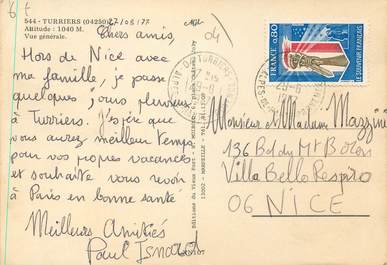 6 F
544 - TURRIERS (04250)
Altitude : 1040 M.
Vue générale.
27/08/77
04
Chers amis,
Hors de Nice avec
ma famille, je passe
quelques jours pluvieux
à Turriers. J'espère que
vous aurez meilleur temps
pour vos propres vacances
et souhaite vous revoir
à Paris en bonne santé
Meilleures Amitiés
Paul Isnard
13002 - MARSEILLE
FRANCE 0,80
LE SOUVENIR FRANÇAIS
TURRIERS
Monsieur et Madame Mazzini
136 Bd du Mt Boron
Villa Bello Respiro
06 NICE